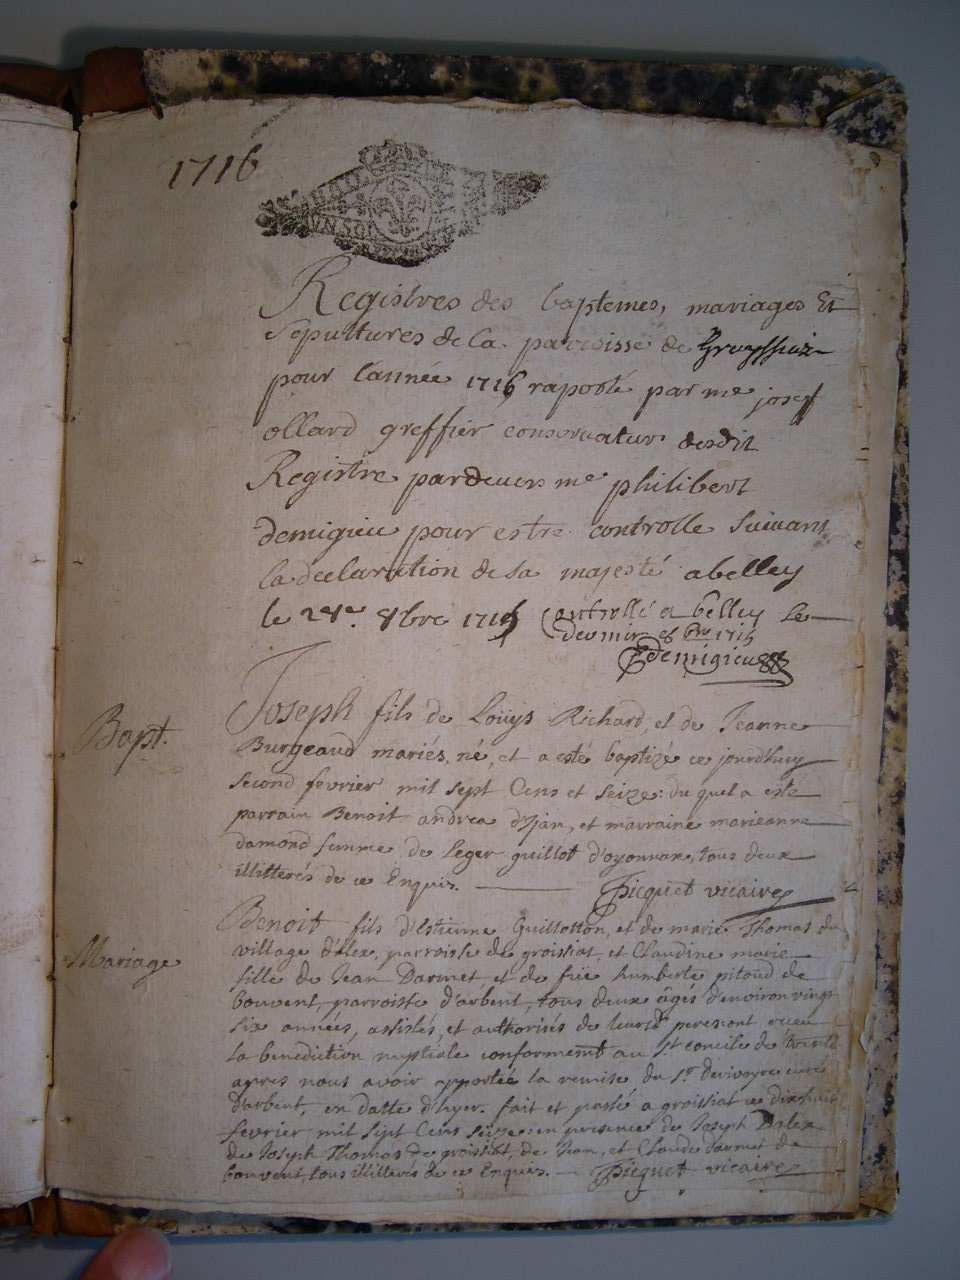 1716
UN SOL
Registres des baptemes, mariages Et
Sepultures de la parroisse de
pour l'année 1716 raporté par me josep
ollard greffier conservateur desdit
Registre pardevers me philibert
demigieu pour estre controllé suivant
la declaration de sa majesté a belley
le 24e. 8bre 1715 Controllé a belley Le
1715
demigieu
Bapt.
Joseph fils de Loüys Richard, et de Jeanne
Burgeaud mariés, né, et a esté baptizé ce jourd'huy
second fevrier mil sept Cens et seize: du quel a esté
parrain Benoit andrea d'Ijan, et marraine marieanne
damond femme de Leger guillot d'oyonnax, tous deux
illitterés de ce Enquis. Picquet vicaire
Mariage
Benoit fils d'Estienne Guillotton, et de marie Thomas du
village d'alex, parroisse de groissiat, et Claudine marie
fille de Jean Darmet, et de füe humberte pitoud de
bouvent, parroisse d'arbent, tous deux âgés d'environ vingt
six années, assistés, et authorisés de leursd. peres ont receu
la benediction nuptiale conformemt au St concile de trente
apres nous avoir apportée la remise du Sr. curé
D'arbent, en datte d'hyer. fait et passé a groissiat ce dixhuit
fevrier mil sept Cens seize: en presence de Joseph
de Joseph Thomas de groissiat, de Jean, et Claude darmet de
bouvent, tous illitterés de ce Enquis. Picquet vicaire